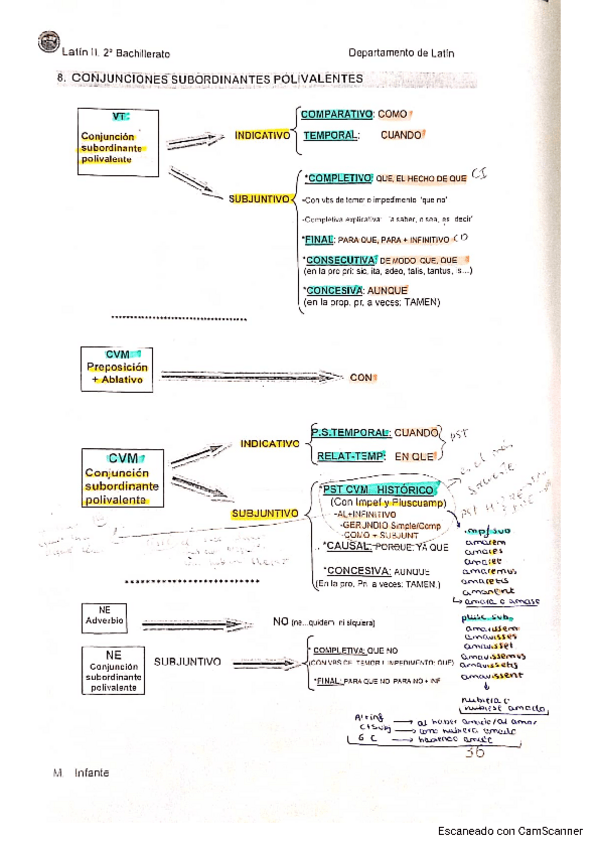 Latín II. 2º Bachillerato
Departamento de Latín
8. CONJUNCIONES SUBORDINANTES POLIVALENTES
VT
Conjunción
subordinante
polivalente
INDICATIVO
COMPARATIVO: COMO
TEMPORAL: CUANDO
SUBJUNTIVO
*COMPLETIVO: QUE, EL HECHO DE QUE CI
-Con vbs de temer o impedimento 'que no'
-Completiva explicativa: 'a saber, o sea, es decir'
*FINAL: PARA QUE, PARA + INFINITIVO CD
*CONSECUTIVA: DE MODO QUE, QUE
(en la pro pri: sic, ita, adeo, talis, tantus, is...)
*CONCESIVA: AUNQUE
(en la prop. pr. a veces: TAMEN)
CVM
Preposición
+ Ablativo
CON
CVM
Conjunción
subordinante
polivalente
INDICATIVO
P.S.TEMPORAL: CUANDO
RELAT-TEMP: EN QUE
pst
SUBJUNTIVO
*PST CVM HISTÓRICO
(Con Impef y Pluscuamp)
-AL+INFINITIVO
-GERUNDIO Simple/Comp
-COMO + SUBJUNT
*CAUSAL: PORQUE, YA QUE
*CONCESIVA: AUNQUE
(En la pro. Pri. a veces: TAMEN.)
imp/sub
amarem
amares
amaret
amaremus
amaretis
amarent
amara o amase
plusc sub.
amavissem
amavisses
amavisset
amavissemus
amavissetis
amavissent
hubiera o
hubiese amado
NE
Adverbio
NO (ne...quidem: ni siquiera)
NE
Conjunción
subordinante
polivalente
SUBJUNTIVO
COMPLETIVA: QUE NO
(CON VBS DE TEMOR E IMPEDIMENTO: QUE)
*FINAL: PARA QUE NO PARA NO + INF
Al+inf al haber amado/al amar
C+Sub como hubiera amado
G C habiendo amado
36
M. Infante
Escaneado con CamScanner